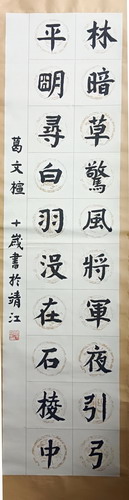 林暗草驚風將軍夜引弓
平明尋白羽沒在石棱中
葛文檀 十歲書於靖江